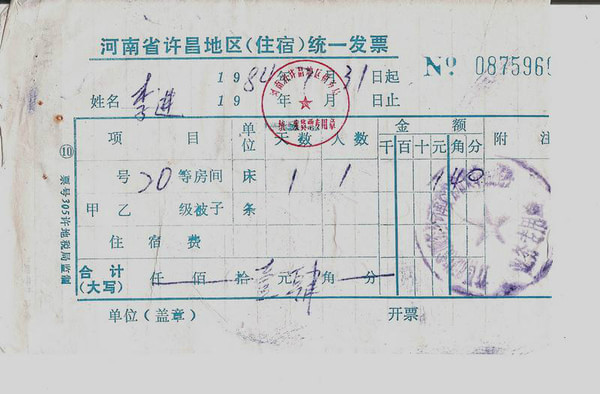 河南省许昌地区(住宿)统一发票
1984年 月31日起 Nº 0875969
姓名 李进 19 年 月 日止
项目 单位 天数 人数 金额 附注
千百十元角分
号 20 等房间 床 1 1 1 40
甲乙 级被子 条
住宿费
合计(大写) 仟 佰 拾 壹 元 肆 角 分
单位(盖章) 开票
⑩ 票号305许地税局监制